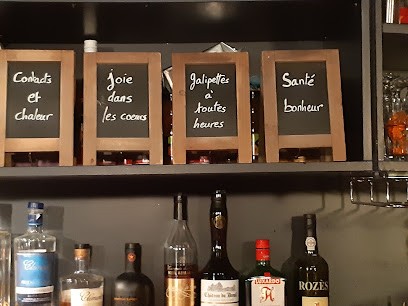 Contacts
et
chaleur
Joie
dans
les coeurs
galipettes
à
toutes
heures
Santé
bonheur
ROZÈS